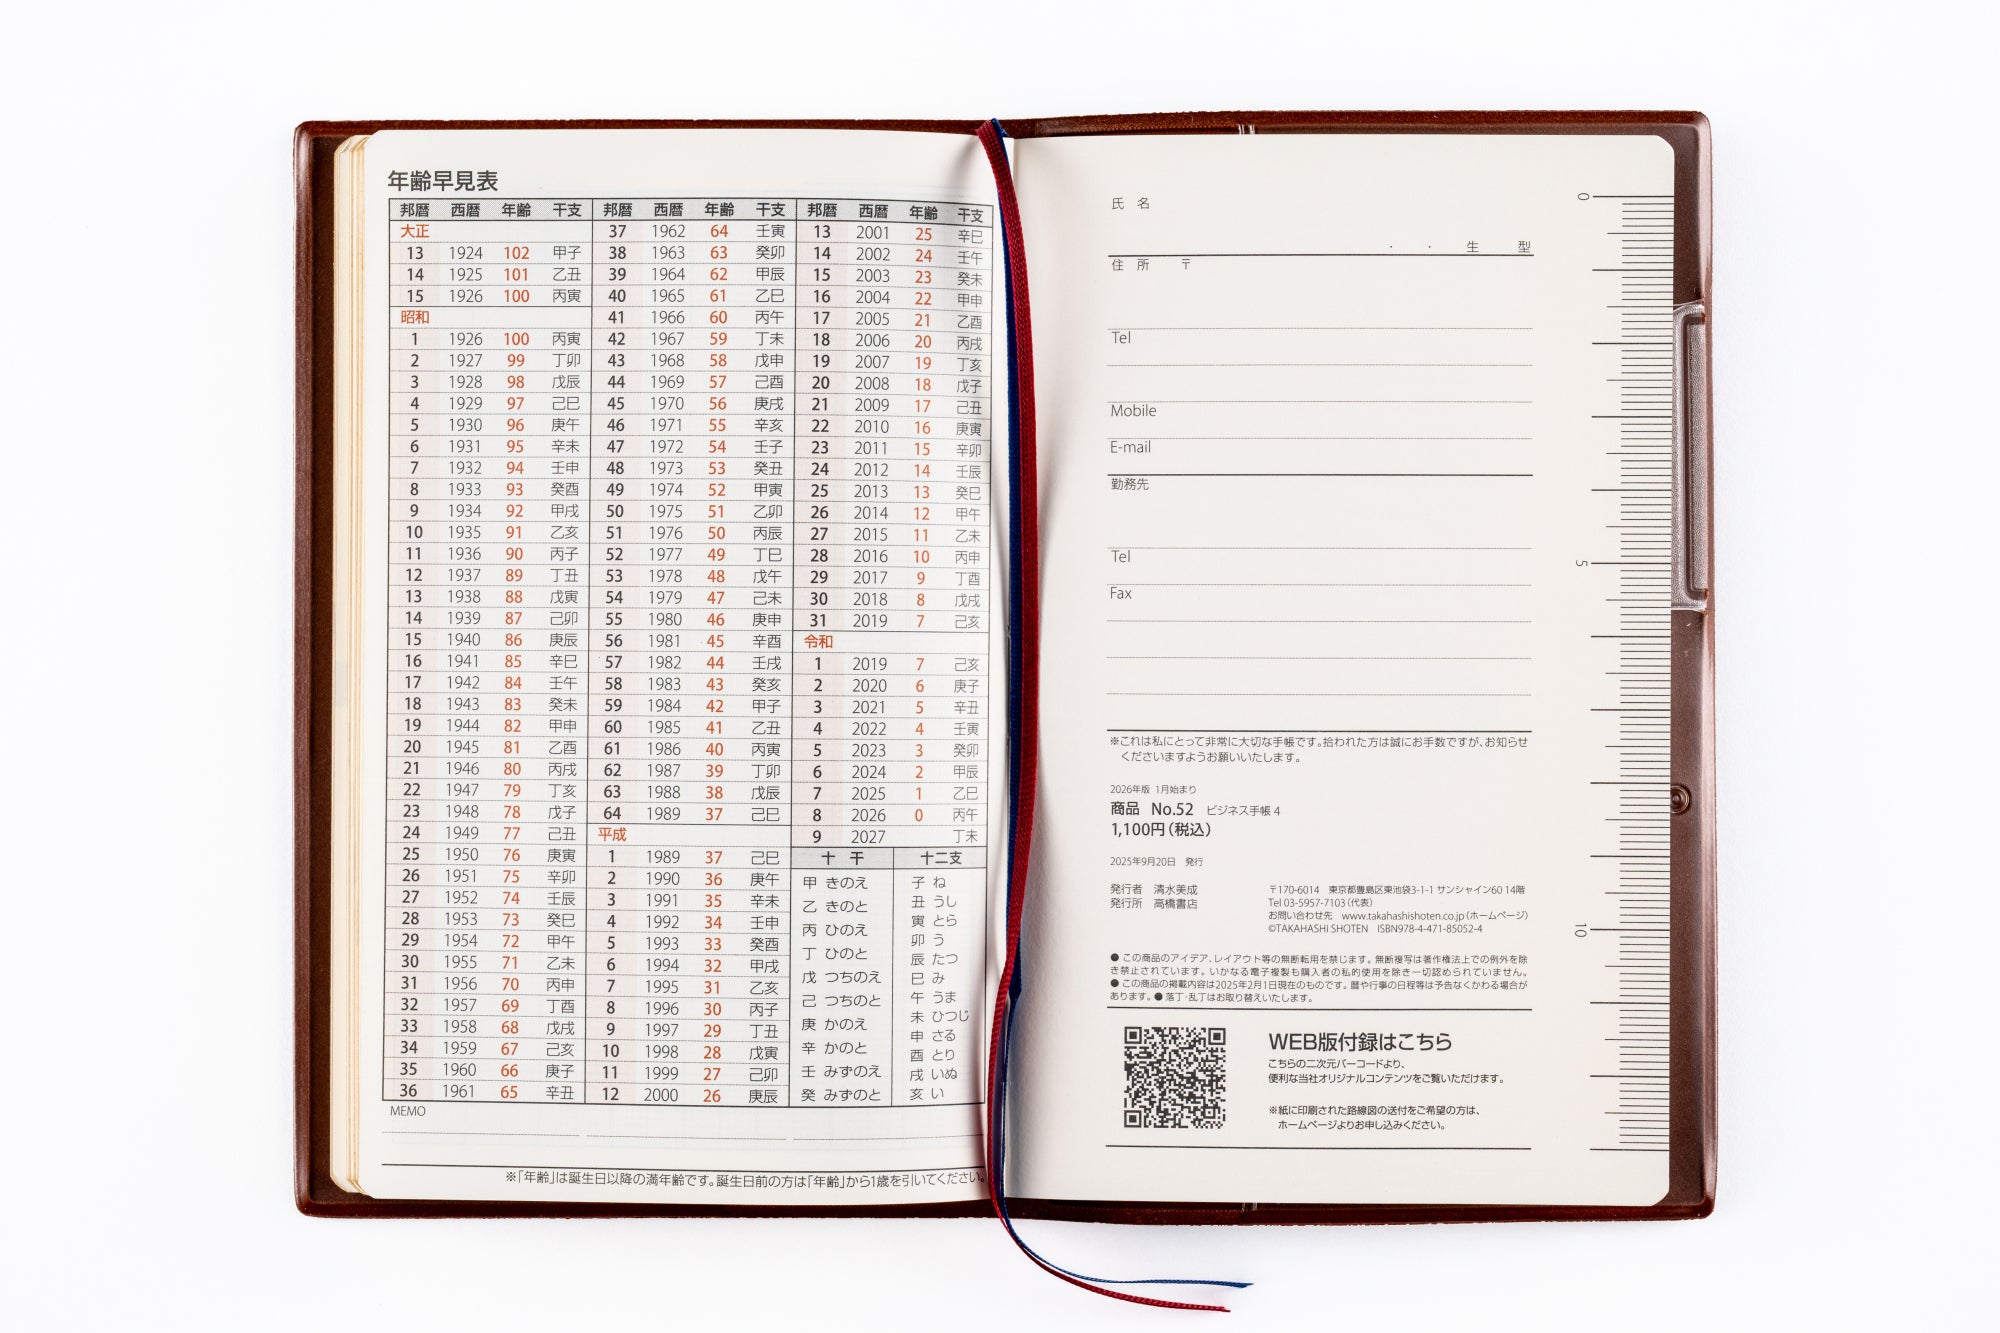 年齢早見表
邦暦 西暦 年齢 干支
大正
13 1924 102 甲子
14 1925 101 乙丑
15 1926 100 丙寅
昭和
1 1926 100 丙寅
2 1927 99 丁卯
3 1928 98 戊辰
4 1929 97 己巳
5 1930 96 庚午
6 1931 95 辛未
7 1932 94 壬申
8 1933 93 癸酉
9 1934 92 甲戌
10 1935 91 乙亥
11 1936 90 丙子
12 1937 89 丁丑
13 1938 88 戊寅
14 1939 87 己卯
15 1940 86 庚辰
16 1941 85 辛巳
17 1942 84 壬午
18 1943 83 癸未
19 1944 82 甲申
20 1945 81 乙酉
21 1946 80 丙戌
22 1947 79 丁亥
23 1948 78 戊子
24 1949 77 己丑
25 1950 76 庚寅
26 1951 75 辛卯
27 1952 74 壬辰
28 1953 73 癸巳
29 1954 72 甲午
30 1955 71 乙未
31 1956 70 丙申
32 1957 69 丁酉
33 1958 68 戊戌
34 1959 67 己亥
35 1960 66 庚子
36 1961 65 辛丑
邦暦 西暦 年齢 干支
37 1962 64 壬寅
38 1963 63 癸卯
39 1964 62 甲辰
40 1965 61 乙巳
41 1966 60 丙午
42 1967 59 丁未
43 1968 58 戊申
44 1969 57 己酉
45 1970 56 庚戌
46 1971 55 辛亥
47 1972 54 壬子
48 1973 53 癸丑
49 1974 52 甲寅
50 1975 51 乙卯
51 1976 50 丙辰
52 1977 49 丁巳
53 1978 48 戊午
54 1979 47 己未
55 1980 46 庚申
56 1981 45 辛酉
57 1982 44 壬戌
58 1983 43 癸亥
59 1984 42 甲子
60 1985 41 乙丑
61 1986 40 丙寅
62 1987 39 丁卯
63 1988 38 戊辰
64 1989 37 己巳
平成
1 1989 37 己巳
2 1990 36 庚午
3 1991 35 辛未
4 1992 34 壬申
5 1993 33 癸酉
6 1994 32 甲戌
7 1995 31 乙亥
8 1996 30 丙子
9 1997 29 丁丑
10 1998 28 戊寅
11 1999 27 己卯
12 2000 26 庚辰
邦暦 西暦 年齢 干支
13 2001 25 辛巳
14 2002 24 壬午
15 2003 23 癸未
16 2004 22 甲申
17 2005 21 乙酉
18 2006 20 丙戌
19 2007 19 丁亥
20 2008 18 戊子
21 2009 17 己丑
22 2010 16 庚寅
23 2011 15 辛卯
24 2012 14 壬辰
25 2013 13 癸巳
26 2014 12 甲午
27 2015 11 乙未
28 2016 10 丙申
29 2017 9 丁酉
30 2018 8 戊戌
31 2019 7 己亥
令和
1 2019 7 己亥
2 2020 6 庚子
3 2021 5 辛丑
4 2022 4 壬寅
5 2023 3 癸卯
6 2024 2 甲辰
7 2025 1 乙巳
8 2026 0 丙午
9 2027 丁未
十 干
甲 きのえ
乙 きのと
丙 ひのえ
丁 ひのと
戊 つちのえ
己 つちのと
庚 かのえ
辛 かのと
壬 みずのえ
癸 みずのと
十二支
子 ね
丑 うし
寅 とら
卯 う
辰 たつ
巳 み
午 うま
未 ひつじ
申 さる
酉 とり
戌 いぬ
亥 い
MEMO
※「年齢」は誕生日以降の満年齢です。誕生日前の方は「年齢」から1歳を引いてください。
氏 名
・ ・ 生 型
住 所 〒
Tel
Mobile
E-mail
勤務先
Tel
Fax
※これは私にとって非常に大切な手帳です。拾われた方は誠にお手数ですが、お知らせ
くださいますようお願いいたします。
2026年版 1月始まり
商品 No.52 ビジネス手帳 4
1,100円(税込)
2025年9月20日 発行
発行者 清水美成
発行所 高橋書店
〒170-6014 東京都豊島区東池袋3-1-1 サンシャイン60 14階
Tel 03-5957-7103(代表)
お問い合わせ先 www.takahashishoten.co.jp(ホームページ)
©TAKAHASHI SHOTEN ISBN978-4-471-85052-4
● この商品のアイデア、レイアウト等の無断転用を禁じます。無断複写は著作権法上での例外を除
き禁止されています。いかなる電子複製も購入者の私的使用を除き一切認められていません。
● この商品の掲載内容は2025年2月1日現在のものです。暦や行事の日程等は予告なくかわる場合が
あります。● 落丁・乱丁はお取り替えいたします。
WEB版付録はこちら
こちらの二次元バーコードより、
便利な当社オリジナルコンテンツをご覧いただけます。
※紙に印刷された路線図の送付をご希望の方は、
ホームページよりお申し込みください。
0
5
10